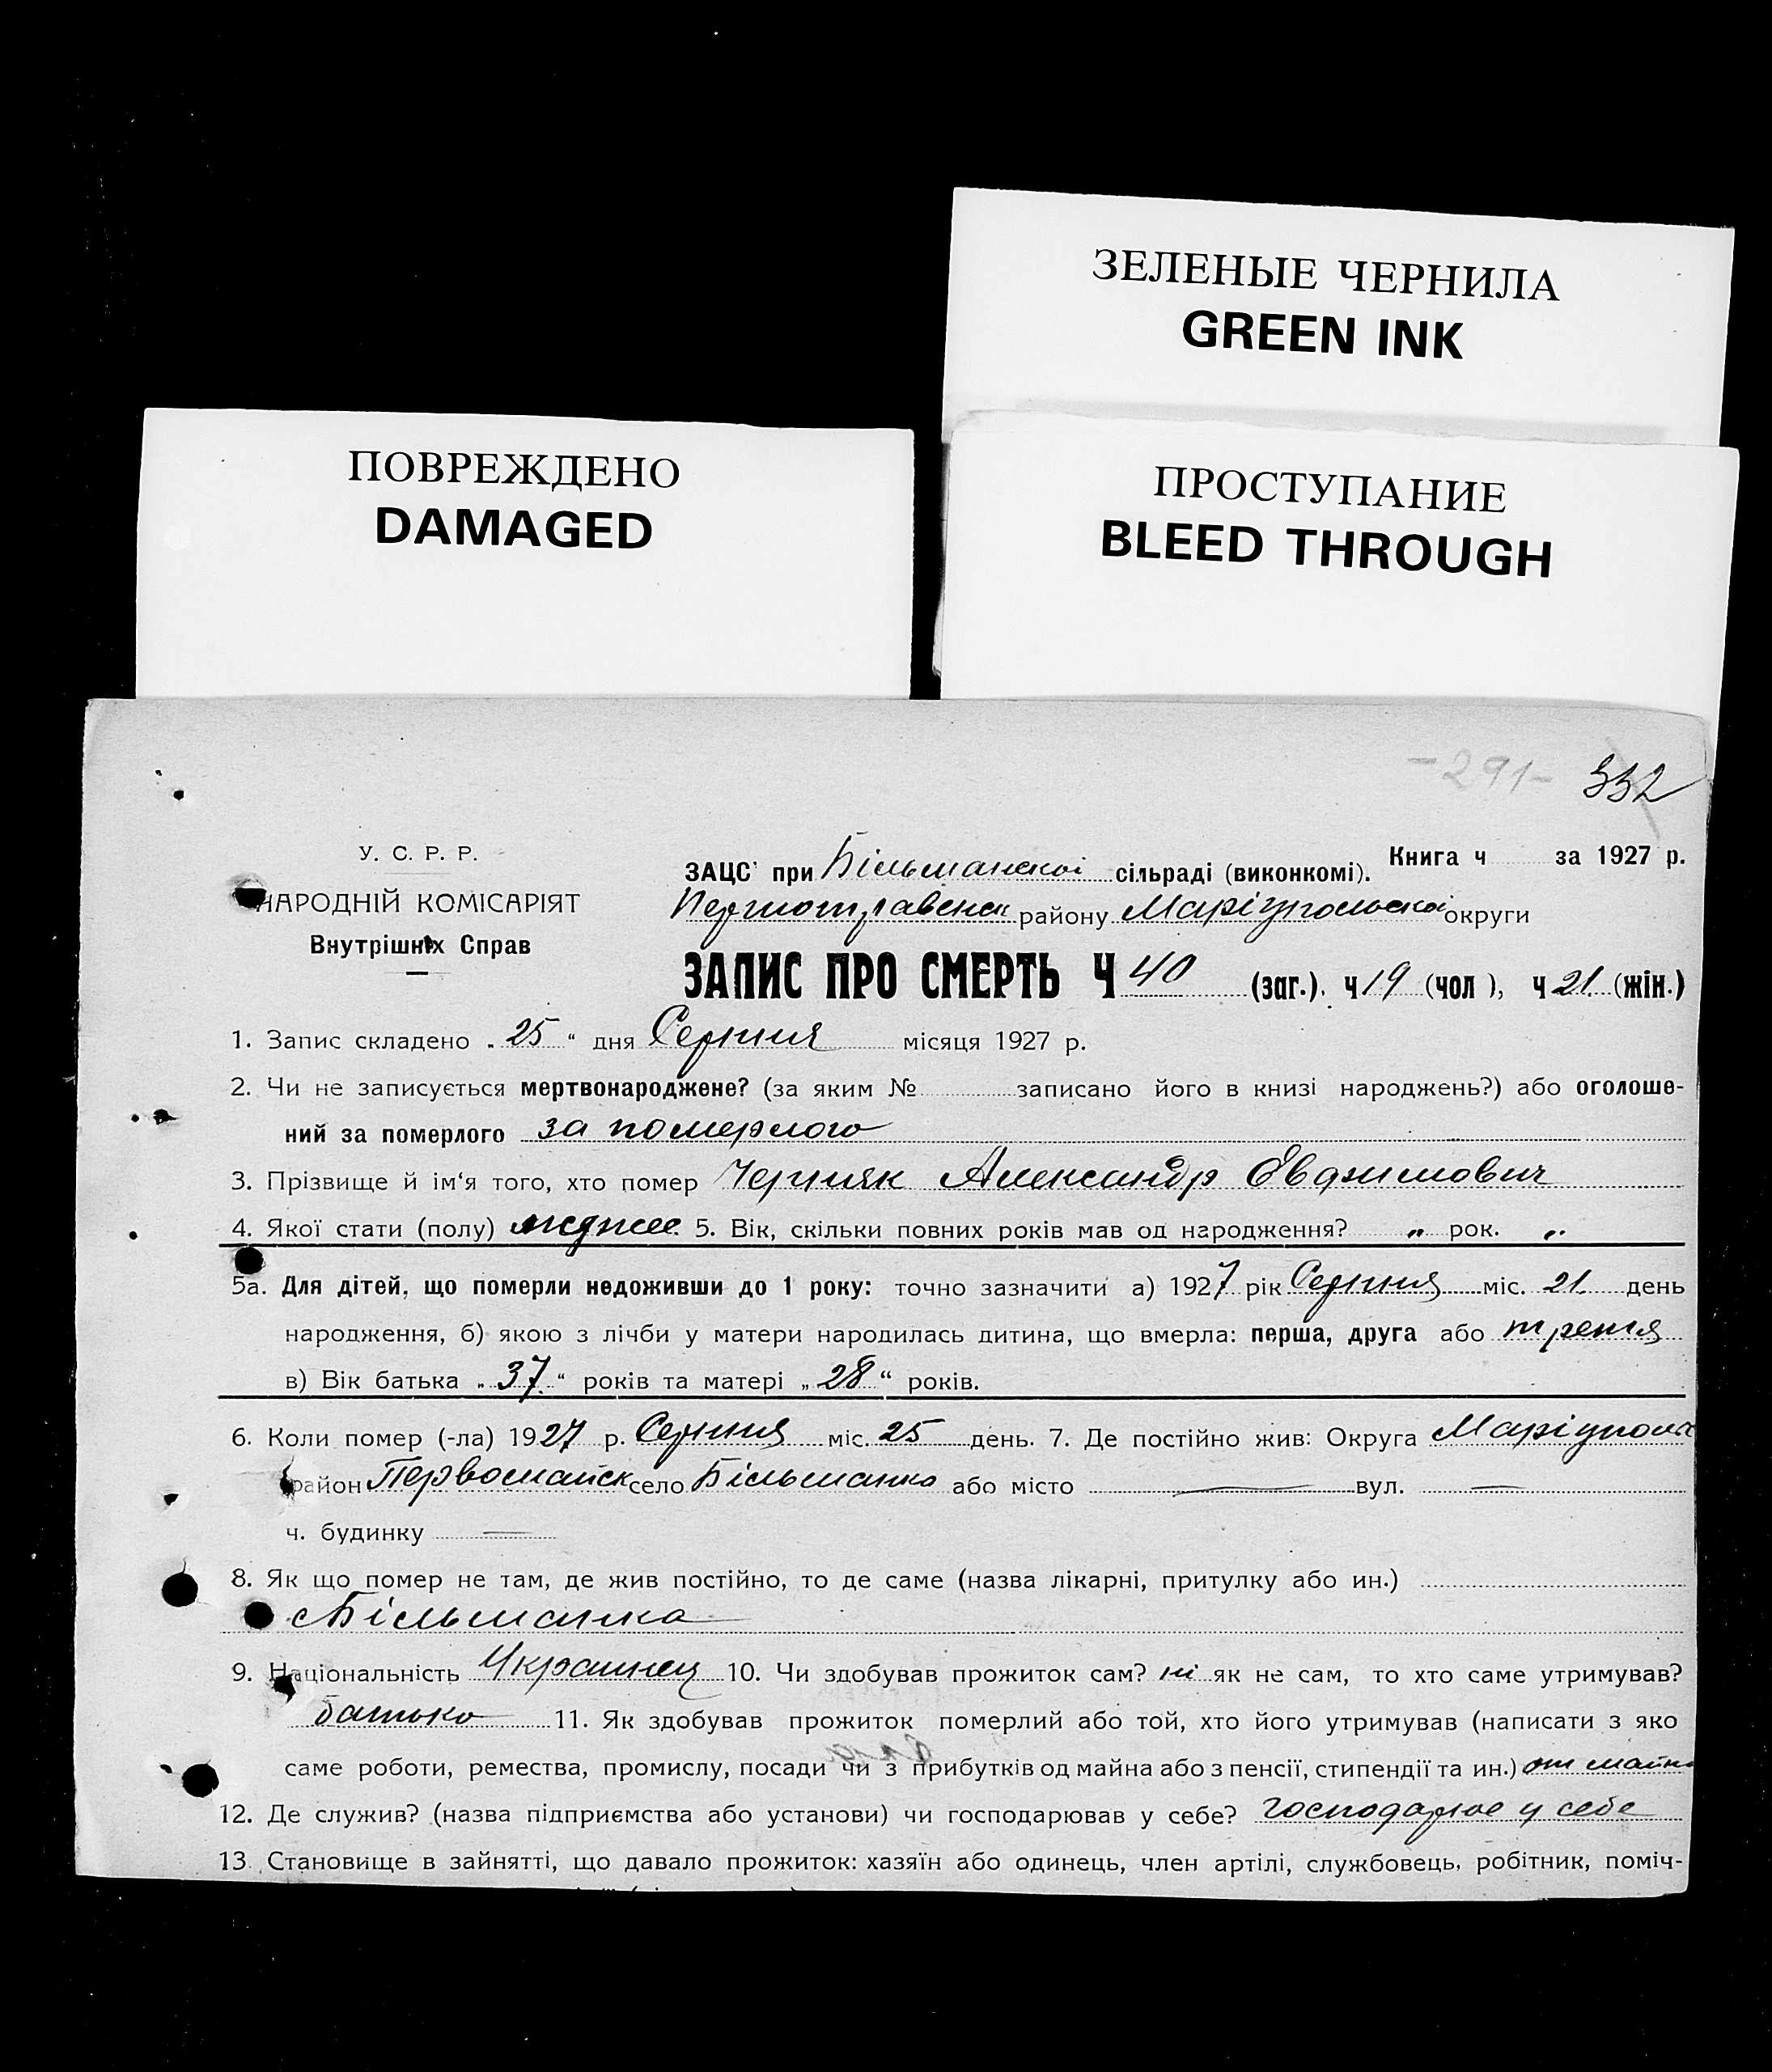 ЗЕЛЕНЫЕ ЧЕРНИЛА
GREEN INK
ПОВРЕЖДЕНО
DAMAGED
ПРОСТУПАНИЕ
BLEED THROUGH
-291- 332
У. С. Р. Р.
НАРОДНІЙ КОМІСАРІЯТ
Внутрішніх Справ
Книга ч за 1927 р.
ЗАЦС при Більманскої сільраді (виконкомі).
Першотравенск району Маріупольскої округи
ЗАПИС ПРО СМЕРТЬ Ч 40 (заг.), ч 19 (чол), ч 21. (жін.)
1. Запис складено „25“ дня Серпня місяця 1927 р.
2. Чи не записується мертвонароджене? (за яким № записано його в книзі народжень?) або оголоше-
ний за померлого за померлого
3. Прізвище й ім‘я того, хто помер Черняк Александр Евдимович
4. Якої стати (полу) 5. Вік, скільки повних років мав од народження? „ рок. „
5а. Для дітей, що померли недоживши до 1 року: точно зазначити а) 1927 рік Серпня міс. 21. день
народження, б) якою з лічби у матери народилась дитина, що вмерла: перша, друга або третя
в) Вік батька „37“ років та матері „28“ років.
6. Коли помер (-ла) 1927 р. Серпня міс. 25 день. 7. Де постійно жив: Округа Маріупольс
район Первомайск село Більманка або місто — вул. —
ч. будинку —
8. Як що помер не там, де жив постійно, то де саме (назва лікарні, притулку або ин.)
Більманка
9. Національність Украинец 10. Чи здобував прожиток сам? ні як не сам, то хто саме утримував?
батько 11. Як здобував прожиток померлий або той, хто його утримував (написати з яко
саме роботи, ремества, промислу, посади чи з прибутків од майна або з пенсії, стипендії та ин.) от майна
12. Де служив? (назва підприємства або установи) чи господарював у себе? господарює у себе
13. Становище в зайнятті, що давало прожиток: хазяїн або одинець, член артілі, службовець, робітник, поміч-